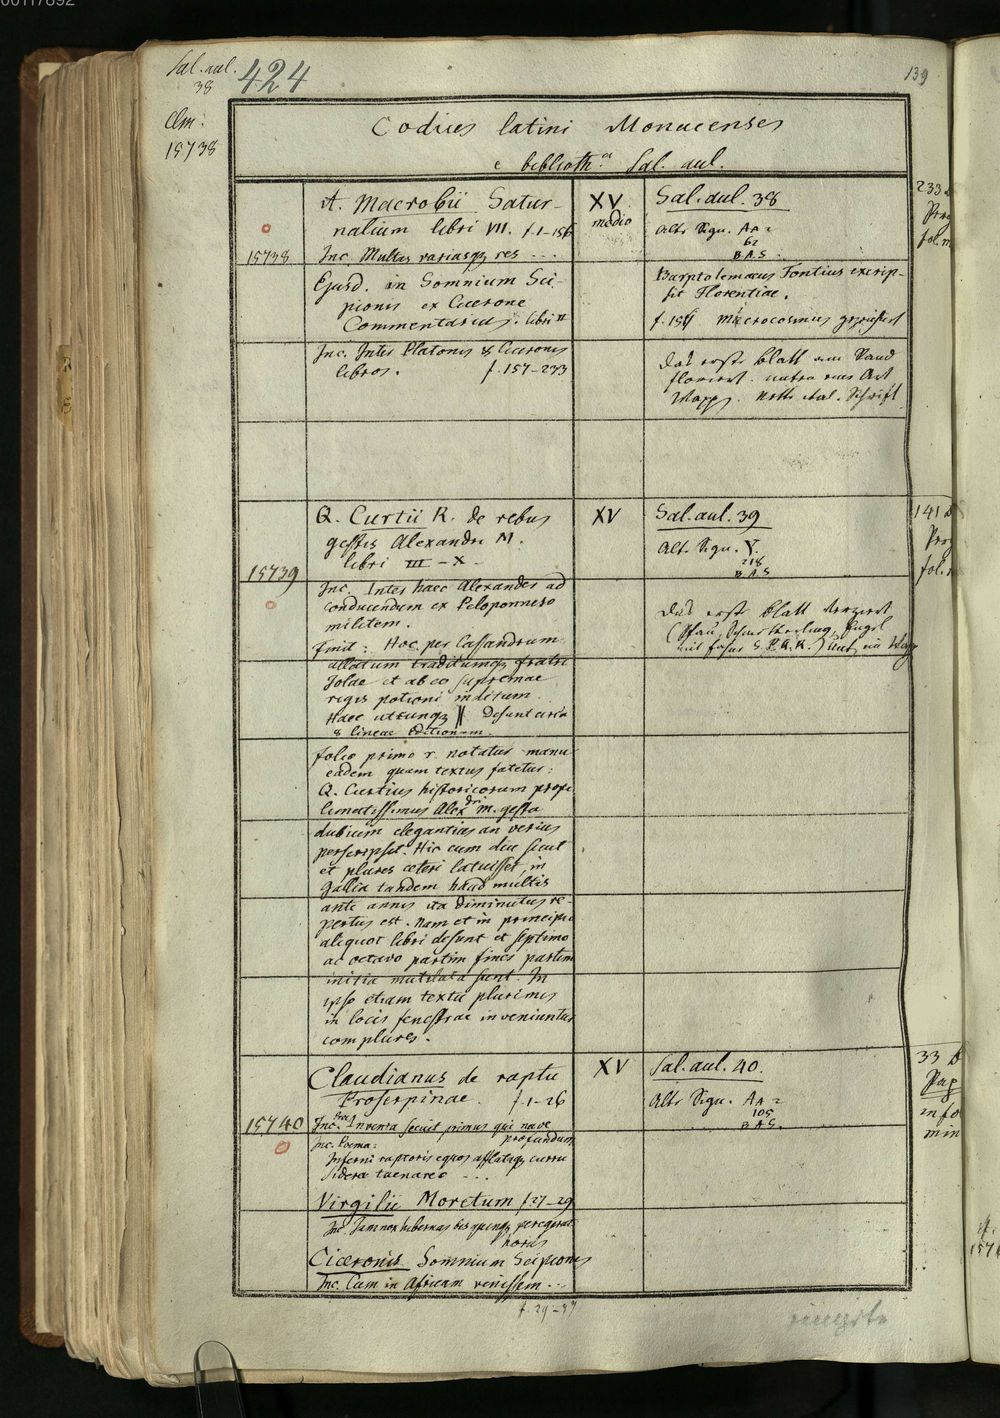 00117892
Sal. aul.
38
424
139
Clm:
15738
Codices latini Monacenses
e biblioth.ca Sal. aul.
15738
A. Macrobii Satur-
nalium libri VII. f. 1-156
Inc. Multas variasqz res ...
Ejusd. in Somnium Sci-
pionis ex Cicerone
Commentarius. libri II
Inc. Inter Platonis & Ciceronis
libros. f. 157-233
XV
medio
Sal. aul. 38
Alte Sign. Aa 2
62
B.A.S.
Bartolemaeus Fontius exscrip-
sit Florentiae.
f. 156
Das erste Blatt am Rand
floriert. unten eine Art
Wapp. nette ital. Schrift
233
fol. m
15739
Q. Curtii R. de rebus
gestis Alexandri M.
libri III - X.
Inc. Inter haec Alexander ad
conducendum ex Peloponneso
militem.
finit: Hoc per Casandrum
allatum traditumqz fratri
Jolae et ab eo supremae
regis potioni inditum.
Haec utcunqz || Desunt circa
8 lineae editionum.
folio primo r. notatur manu
eadem quam textus fatetur:
Q. Curtius historicorum prope
limatissimus Alexdri m. gesta
dubium elegantius an verius
perscripsit. Hic cum diu sicut
et plures ceteri latuisset, in
Gallia tandem haud multis
ante annis ita diminutus re-
pertus est. Nam et in principio
aliquot libri desunt et septimo
ac octavo partim fines partim
initia mutilata sunt. In
ipso etiam textu plurimis
in locis fenestrae inveniuntur
complures.
XV
Sal. aul. 39
Alt. Sign. V.
218
B.A.S
Das erste Blatt verziert
(Pfau, Schmetterling, Engel
141
fol. m
15740
Claudianus de raptu
Proserpinae. f. 1-26
Inc. Prae. Inventa secuit primus qui nave
profundum
Inc. Poema:
Inferni raptoris equos afflataqz curru
sidera taenareo ...
Virgilii Moretum f 27-29
Inc. Jam nox hibernas bis quinqz peregerat
horas
Ciceronis Somnium Scipionis
Inc. Cum in Africam venissem ...
f. 29-37
XV
Sal. aul. 40.
Alte Sign. Aa 2
105
B.A.S.
33
Pap
in fo
min